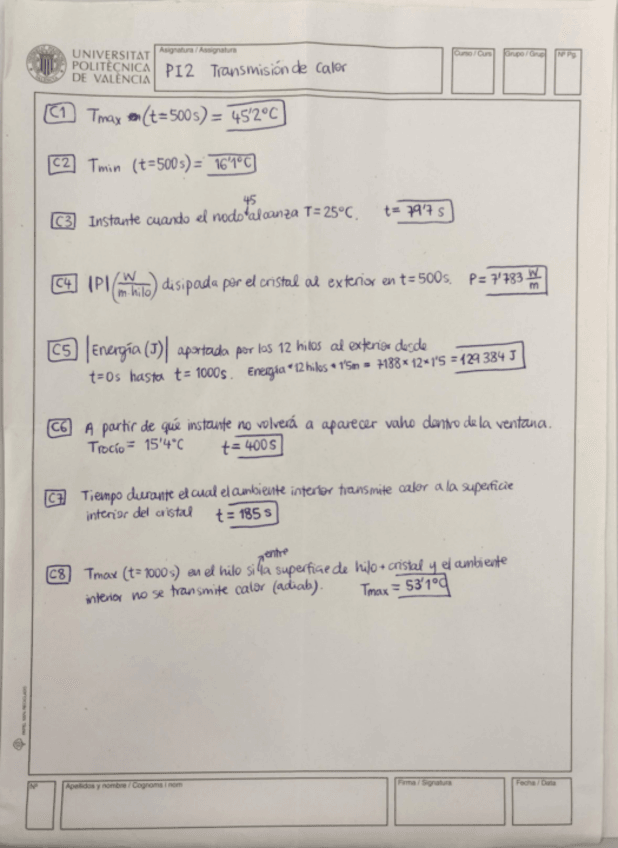 UNIVERSITAT
POLITÈCNICA
DE VALÈNCIA
Asignatura / Assignatura
PI2 Transmisión de Calor
Curso / Curs
Grupo / Grup
Nº Pg.
C1 Tmax (t=500s) = 45'2ºC
C2 Tmin (t=500s) = 16'1ºC
C3 Instante cuando el nodo 45 alcanza T=25ºC. t= 79'7 s
C4 |P| (W/m·hilo) disipada por el cristal al exterior en t=500s. P= 7'783 W/m
C5 |Energía (J)| aportada por los 12 hilos al exterior desde
t=0s hasta t=1000s. Energía * 12 hilos * 1'5m = 7188 * 12 * 1'5 = 129384 J
C6 A partir de qué instante no volverá a aparecer vaho dentro de la ventana.
Trocío = 15'4ºC t = 400s
C7 Tiempo durante el cual el ambiente interior transmite calor a la superficie
interior del cristal t = 185 s
C8 Tmax (t=1000s) en el hilo si entre la superficie de hilo + cristal y el ambiente
interior no se transmite calor (adiab). Tmax = 53'1ºC
Nº
Apellidos y nombre / Cognoms i nom
Firma / Signatura
Fecha / Data